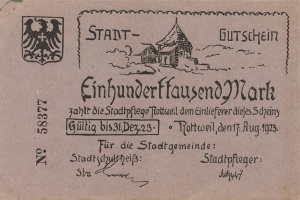 STADT- GUTSCHEIN
Einhunderttausend Mark
zahlt die Stadtpflege Rottweil dem Einlieferer dieses Scheins
Gültig bis 31. Dez. 23. • Rottweil, den 17. Aug. 1923.
Für die Stadtgemeinde:
Stadtschultheiß: Stadtpfleger:
No 58377